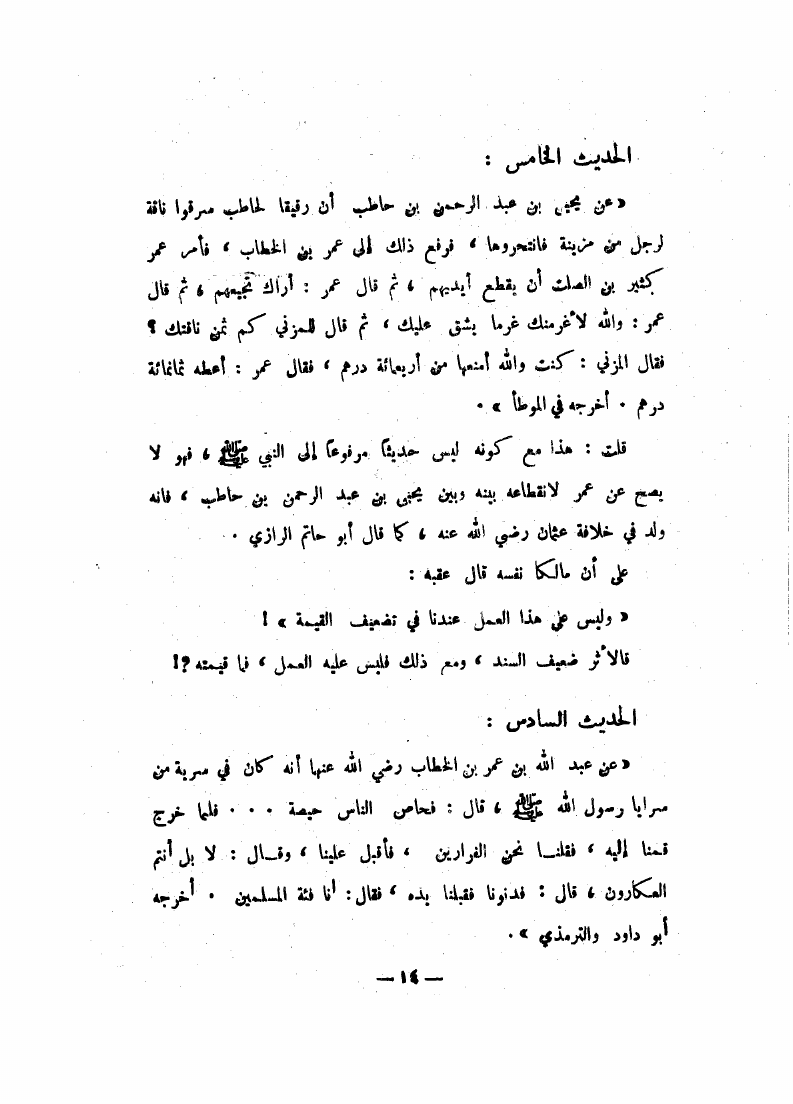 الحديث الخامس :
«عن يحيى بن عبد الرحمن بن حاطب أن رقيقا لحاطب سرقوا ناقة
لرجل من مزينة فانتحروها ، فرفع ذلك إلى عمر بن الخطاب ، فأمر عمر
كثير بن الصلت أن يقطع أيديهم ، ثم قال عمر : أراك تجيعهم ، ثم قال
عمر : والله لأغرمنك غرما يشق عليك ، ثم قال للمزني كم ثمن ناقتك ؟
فقال المزني : كنت والله أمنعها من أربعمائة درهم ، فقال عمر : أعطه ثمانمائة
درهم . أخرجه في الموطأ » .
قلت : هذا مع كونه ليس حديثاً مرفوعاً إلى النبي ﷺ ، فهو لا
يصح عن عمر لانقطاعه بينه وبين يحيى بن عبد الرحمن بن حاطب ، فانه
ولد في خلافة عثمان رضي الله عنه ، كما قال أبو حاتم الرازي .
على أن مالكا نفسه قال عقبه :
« وليس على هذا العمل عندنا في تضعيف القيمة » !
فالأثر ضعيف السند ، ومع ذلك فليس عليه العمل ، فما قيمته ؟!
الحديث السادس :
«عن عبد الله بن عمر بن الخطاب رضي الله عنهما أنه كان في سرية من
سرايا رسول الله ﷺ ، قال : فحاص الناس حيصة . . . فلما خرج
قمنا إليه ، فقلنـا نحن الفرارين ، فأقبل علينا ، وقـال : لا بل أنتم
العكارون ، قال : فدنونا فقبلنا يده ، فقال : أنا فئة المسلمين . أخرجه
أبو داود والترمذي » .
— ١٤ —